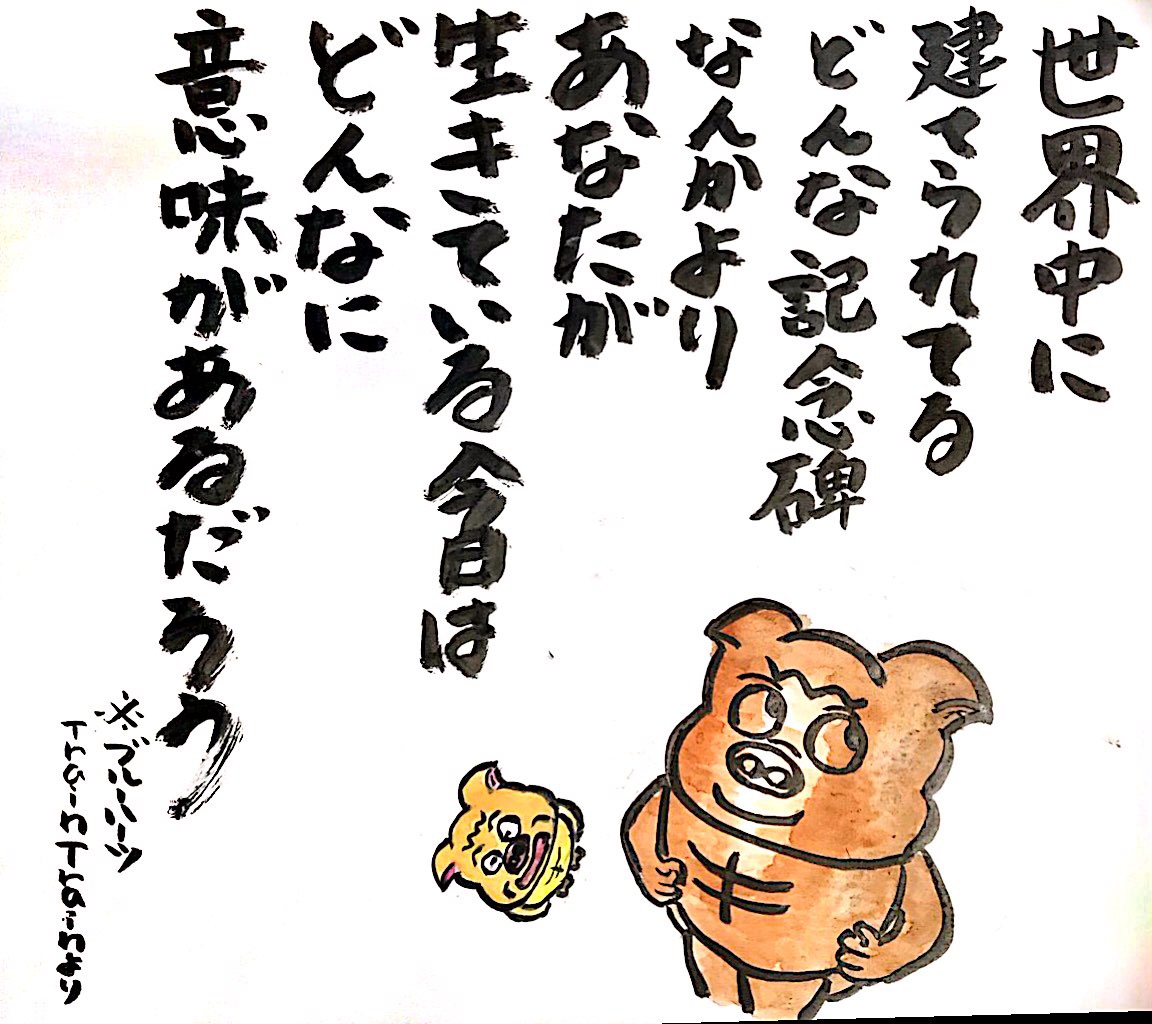 世界中に
建てられてる
どんな記念碑
なんかより
あなたが
生きている今日は
どんなに
意味があるだろう
※ブルーハーツ
TrainTrainより
キ